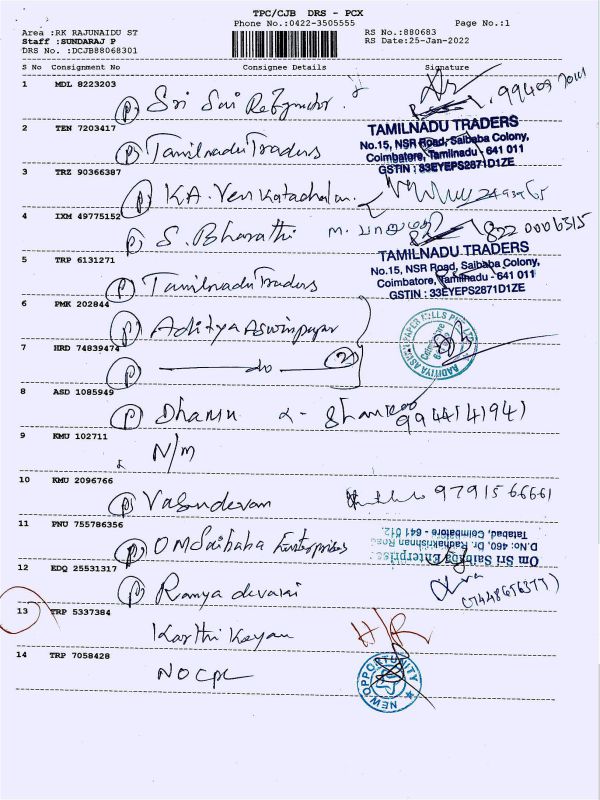 TPC/CJB DRS - PCX
Phone No.:0422-3505555 Page No.:1
Area :RK RAJUNAIDU ST RS No.:880683
Staff :SUNDARAJ P RS Date:25-Jan-2022
DRS No. :DCJB88068301
S No Consignment No Consignee Details Signature
1 MDL 8223203
(P) Sri Sai
2 TEN 7203417
(P) Tamilnadu Traders
TAMILNADU TRADERS
No.15, NSR Road, Saibaba Colony,
Coimbatore, Tamilnadu - 641 011
GSTIN : 33EYEPS2871D1ZE
3 TRZ 90366387
(P) K.A. Venkatachalam
4 IXM 49775152
(P) S. Bharathi 822 0006315
5 TRP 6131271
(P) Tamilnadu Traders
TAMILNADU TRADERS
No.15, NSR Road, Saibaba Colony,
Coimbatore, Tamilnadu - 641 011
GSTIN : 33EYEPS2871D1ZE
6 PMK 202844
(P) Aditya Aswinpaper
7 HRD 74839474
(P) — do — (2)
8 ASD 1085949
(P) 9944141941
9 KMU 102711
N/m
10 KMU 2096766
(P) Vasudevan 9791566661
11 PNU 755786356
(P) OM Saibaba Enterprises
Om Sri Saibaba Enterprises
D.No: 460, Dr. Radhakrishnan Road
Tatabad, Coimbatore - 641 012.
12 EDQ 25531317
(P) Ramya devarai
13 TRP 5337384
Karthi Keyan H/R
14 TRP 7058428
NO CPL
NEW OPPORTUNITY